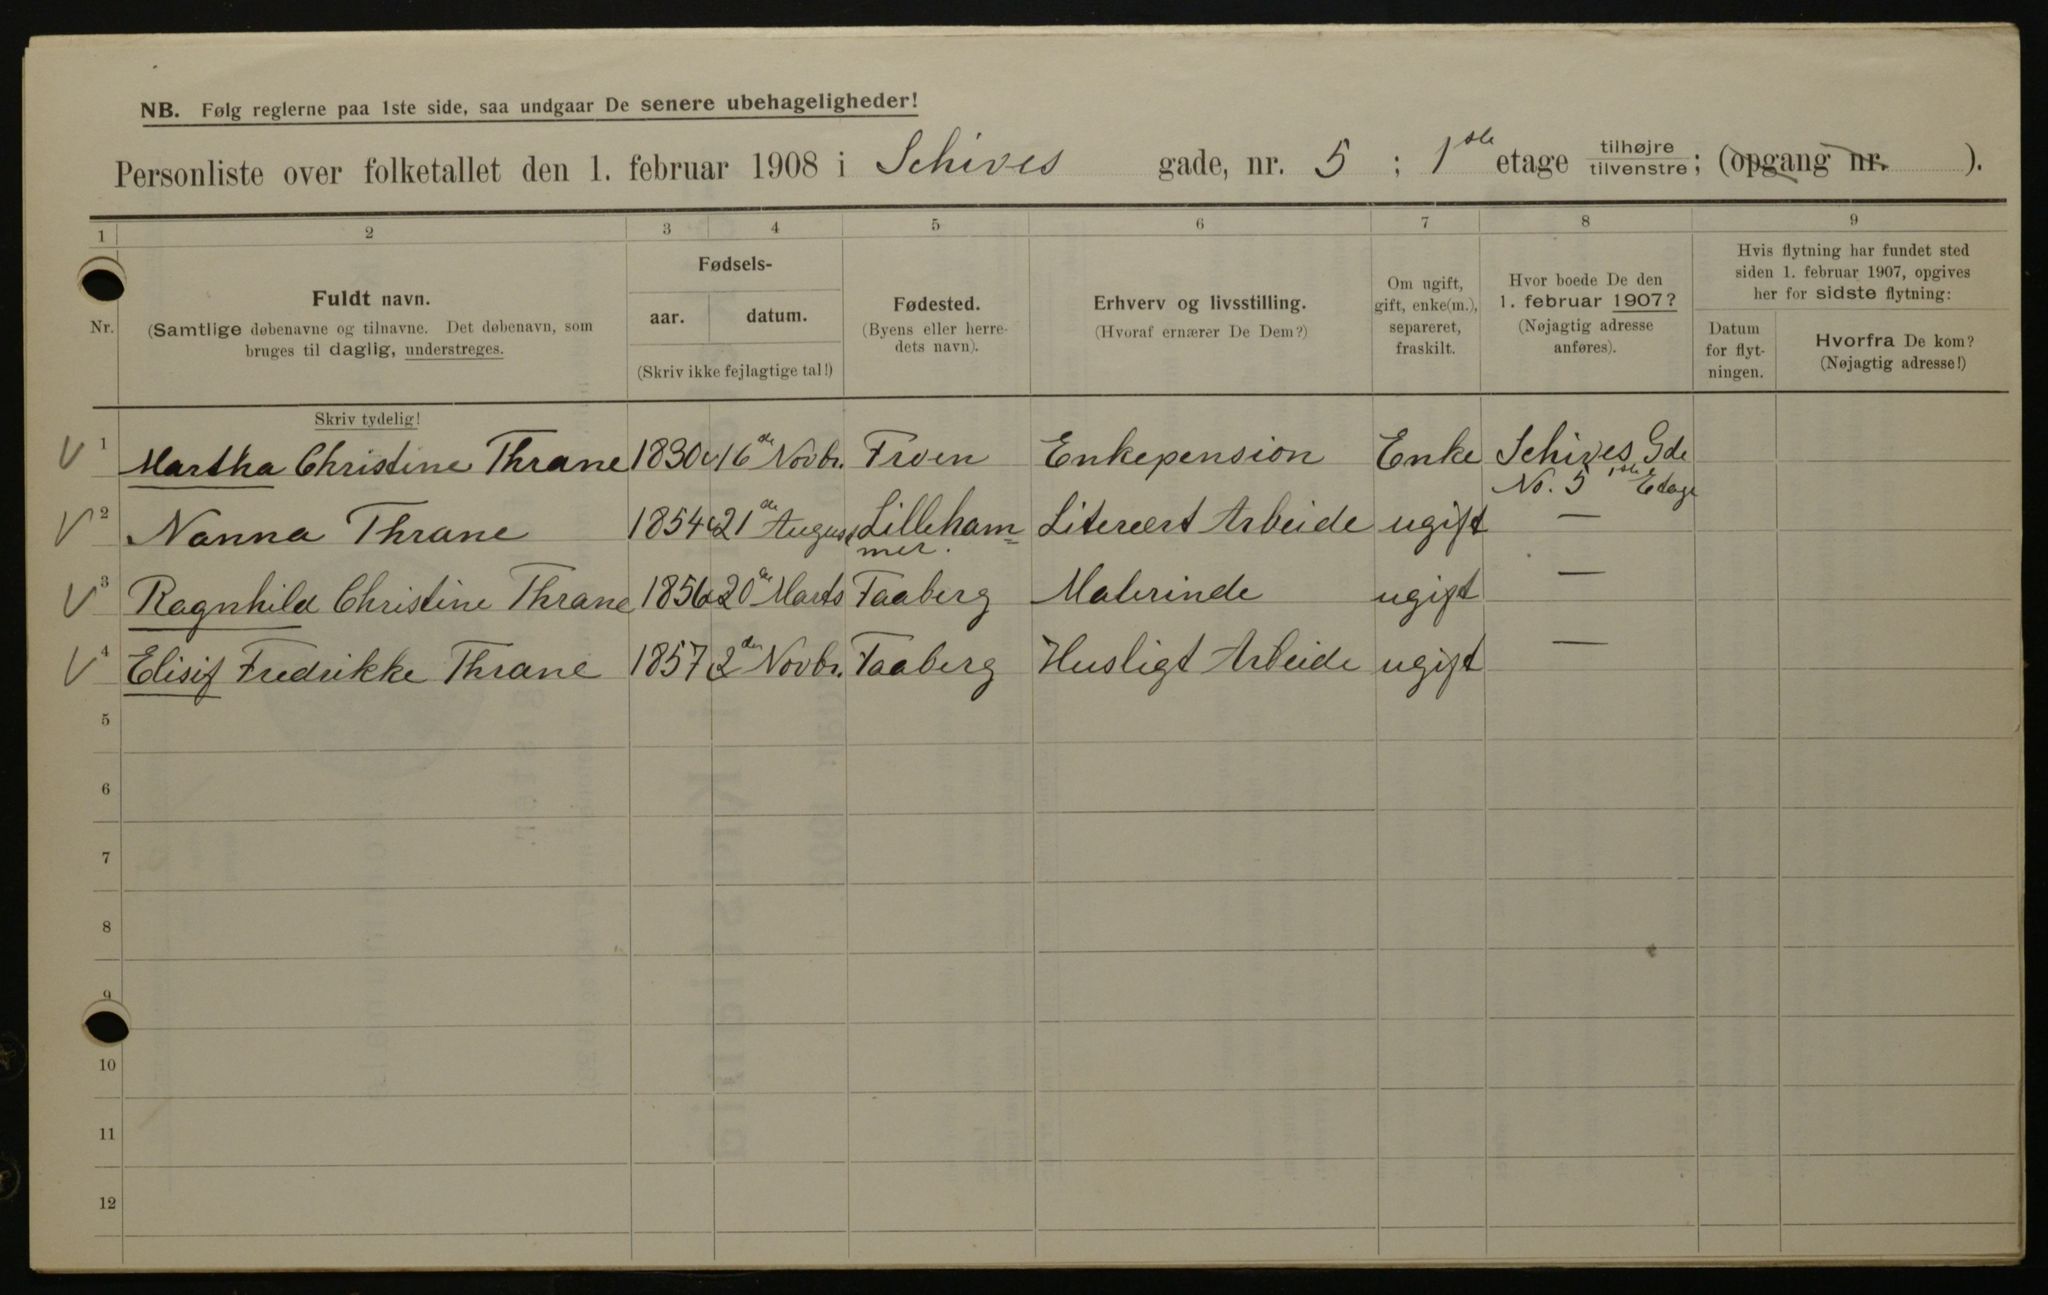 NB. Følg reglerne paa 1ste side, saa undgaar De senere ubehageligheder!
Personliste over folketallet den 1. februar 1908 i Schives gade, nr. 5 ; 1ste etage tilhøjre tilvenstre ; (opgang nr. ).
1 2 3 4 5 6 7 8 9
Nr.
Fuldt navn.
(Samtlige døbenavne og tilnavne. Det døbenavn, som
bruges til daglig, understreges.
Fødsels-
aar. datum.
(Skriv ikke fejlagtige tal!)
Fødested.
(Byens eller herre-
dets navn).
Erhverv og livsstilling.
(Hvoraf ernærer De Dem?)
Om ugift,
gift, enke(m.),
separeret,
fraskilt.
Hvor boede De den
1. februar 1907?
(Nøjagtig adresse
anføres).
Hvis flytning har fundet sted
siden 1. februar 1907, opgives
her for sidste flytning:
Datum
for flyt-
ningen.
Hvorfra De kom?
(Nøjagtig adresse!)
Skriv tydelig!
V 1 Martha Christine Thrane 1830 16de Novbr. Froen Enkepension Enke Schives Gde
No. 5 1ste Etage
V 2 Nanna Thrane 1854 21de August Lilleham=
mer. Literært Arbeide ugift —
V 3 Ragnhild Christine Thrane 1856 20de Marts Faaberg Malerinde ugift —
V 4 Elisif Fredrikke Thrane 1857 2den Novbr. Faaberg Husligt Arbeide ugift —
5
6
7
8
9
10
11
12